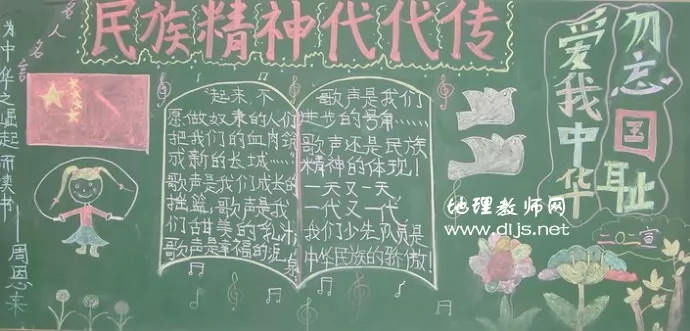 民族精神代代传
名人名言
为中华之崛起而读书——周恩来
起来,不
愿做奴隶的人们
把我们的血肉筑
成新的长城……
歌声是我们成长的
摇篮,歌声是我
们甜美的乳汁,
歌声是幸福的源泉
歌声是我们
进步的号角……
歌声还是民族
精神的体现!
一天又一天,
一代又一代,
我们少先队员是
中华民族的骄傲!
勿忘国耻
爱我中华
地理教师网
www.dljs.net